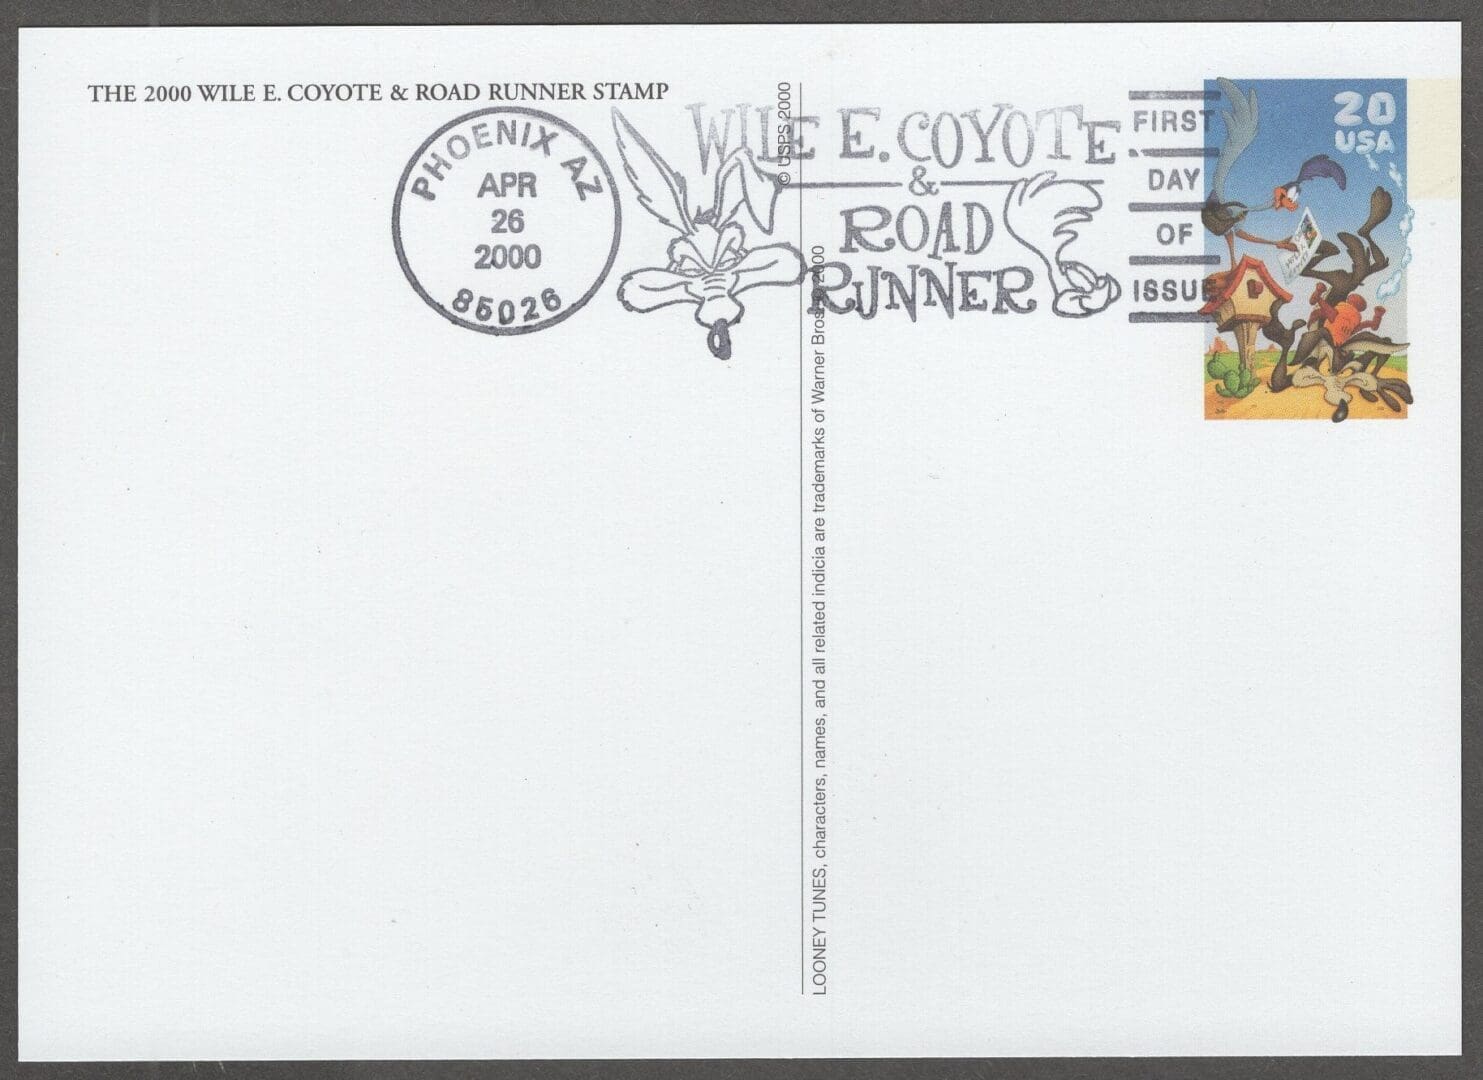 THE 2000 WILE E. COYOTE & ROAD RUNNER STAMP
PHOENIX AZ
APR
26
2000
85026
WILE E. COYOTE
&
ROAD
RUNNER
FIRST
DAY
OF
ISSUE
20
USA
© USPS 2000
LOONEY TUNES, characters, names, and all related indicia are trademarks of Warner Bros. © 2000